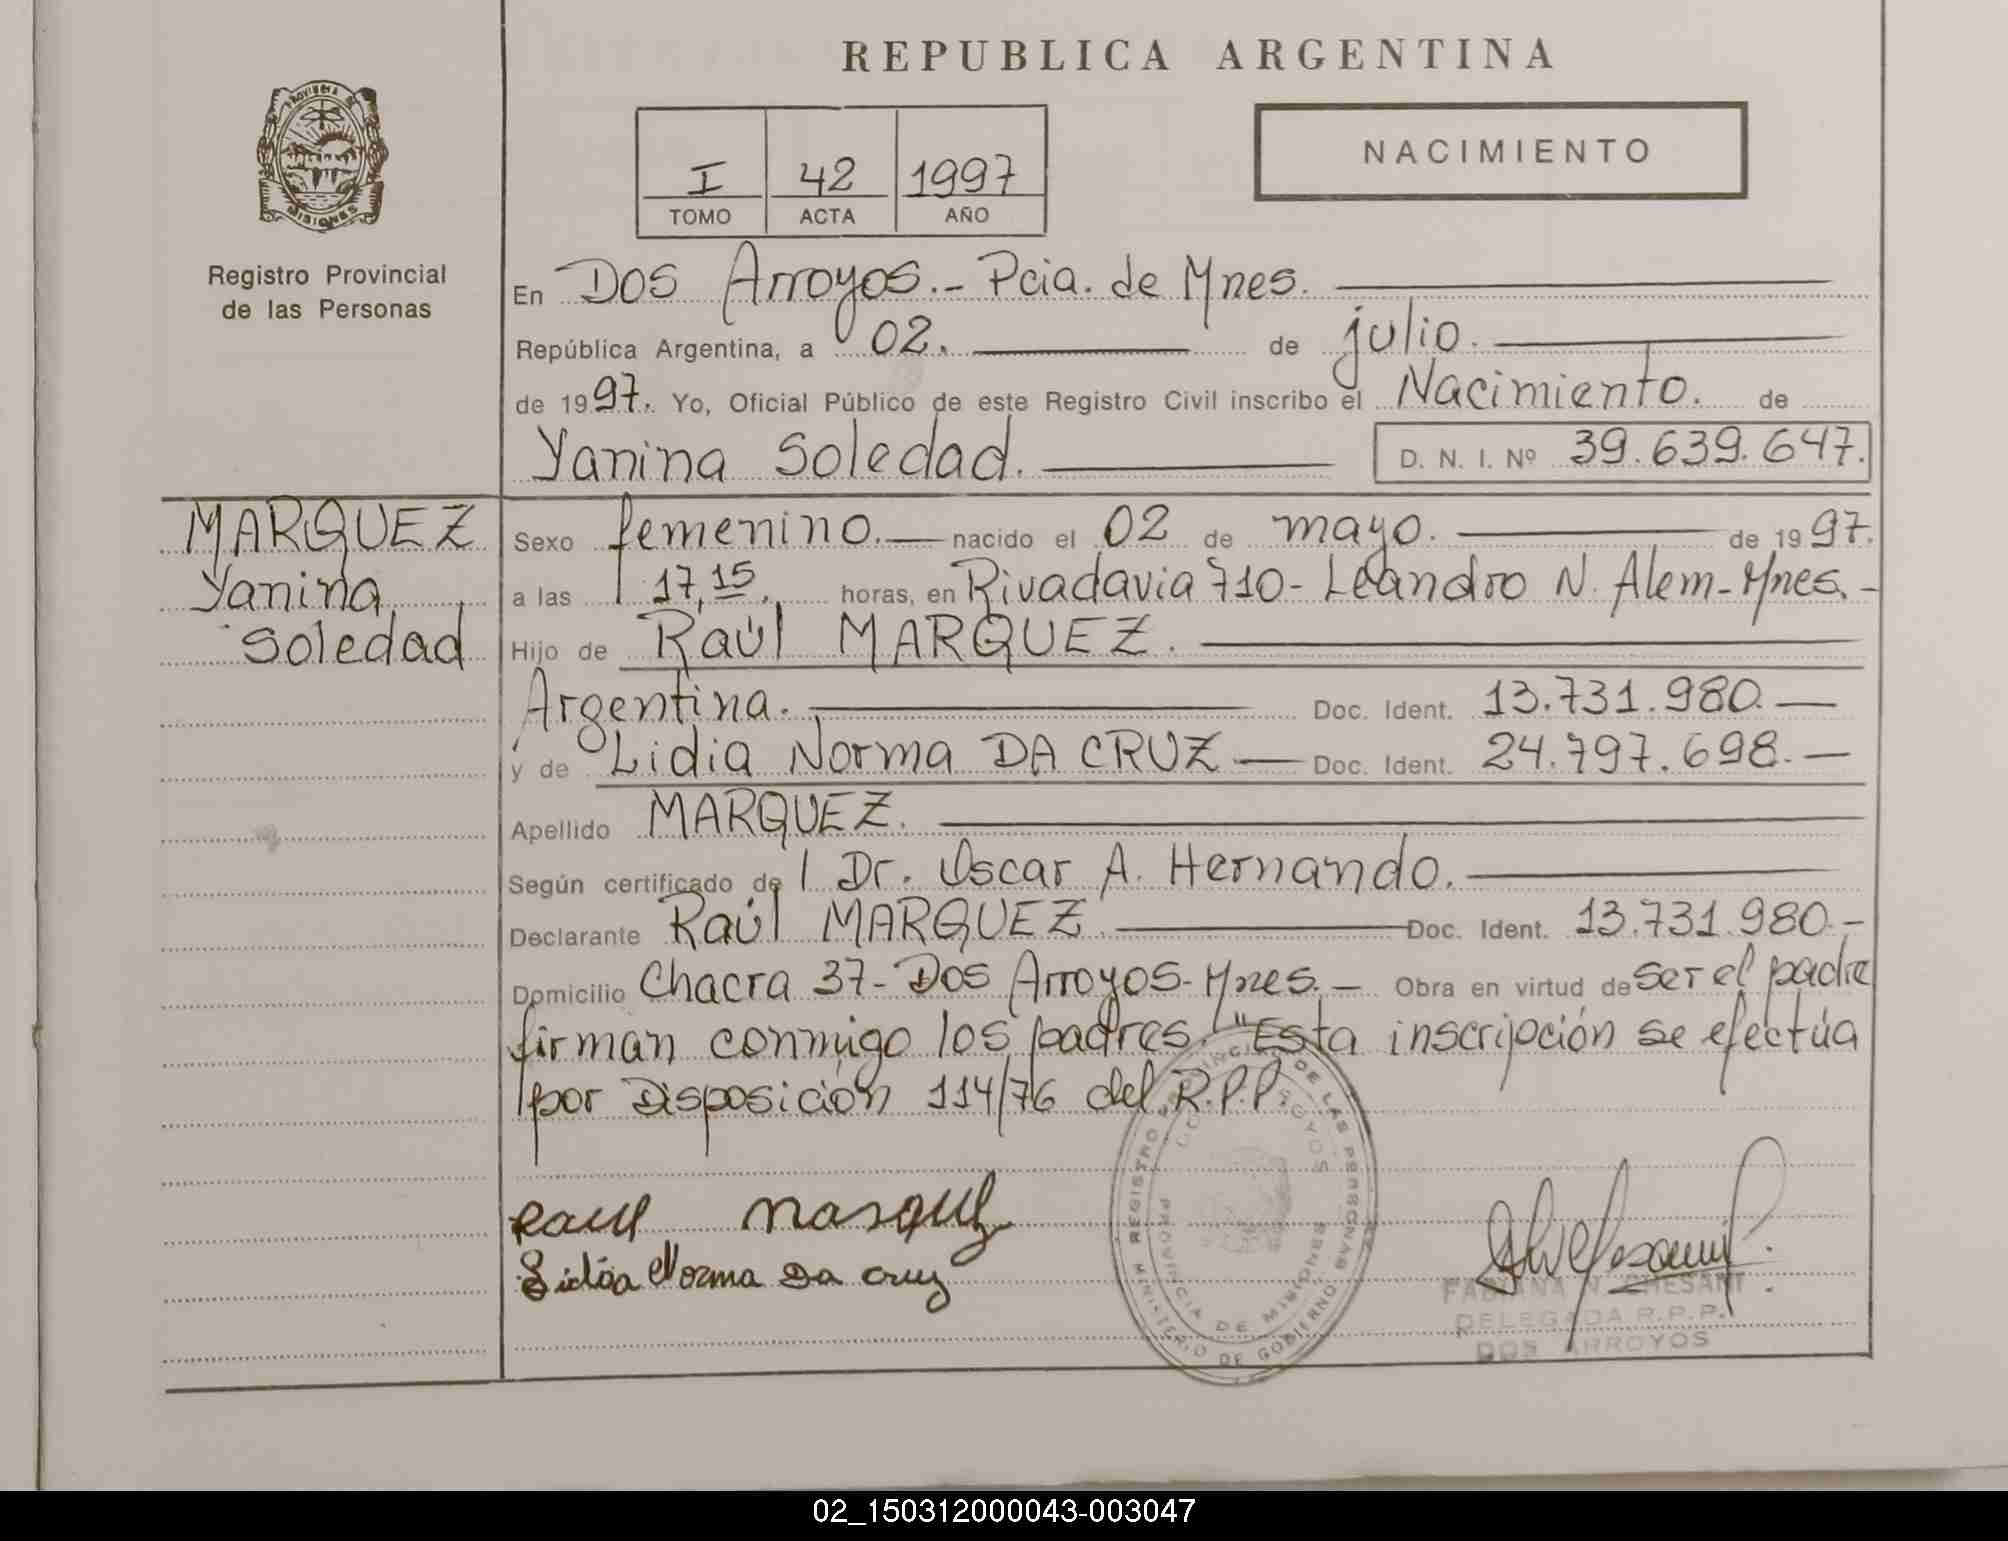 REPUBLICA ARGENTINA
PROVINCIA DE MISIONES
Registro Provincial
de las Personas
I 42 1997
TOMO ACTA AÑO
NACIMIENTO
En Dos Arroyos.- Pcia. de Mnes.
República Argentina, a 02. de julio.
de 1997. Yo, Oficial Público de este Registro Civil inscribo el Nacimiento. de
Yanina Soledad. D. N. I. Nº 39.639.647.
MARQUEZ
Yanina
Soledad
Sexo femenino.— nacido el 02 de mayo. de 1997.
a las 17,15. horas, en Rivadavia 710- Leandro N. Alem-Mnes.-
Hijo de Raúl MARQUEZ.
Argentina. Doc. Ident. 13.731.980.—
y de Lidia Norma DA CRUZ — Doc. Ident. 24.797.698.—
Apellido MARQUEZ.
Según certificado de l Dr. Oscar A. Hernando.
Declarante Raúl MARQUEZ — Doc. Ident. 13.731.980.-
Domicilio Chacra 37- Dos Arroyos-Mnes.— Obra en virtud de ser el padre
firman conmigo los padres. "Esta inscripción se efectúa
por Disposición 114/76 del R.P.P.
Raul Marquez
Lidia Norma Da Cruz
REGISTRO PROVINCIAL DE LAS PERSONAS
MINISTERIO DE GOBIERNO
PROVINCIA DE MISIONES
DOS ARROYOS
FABIANA N. CHESANI
DELEGADA R.P.P.
DOS ARROYOS
02_150312000043-003047